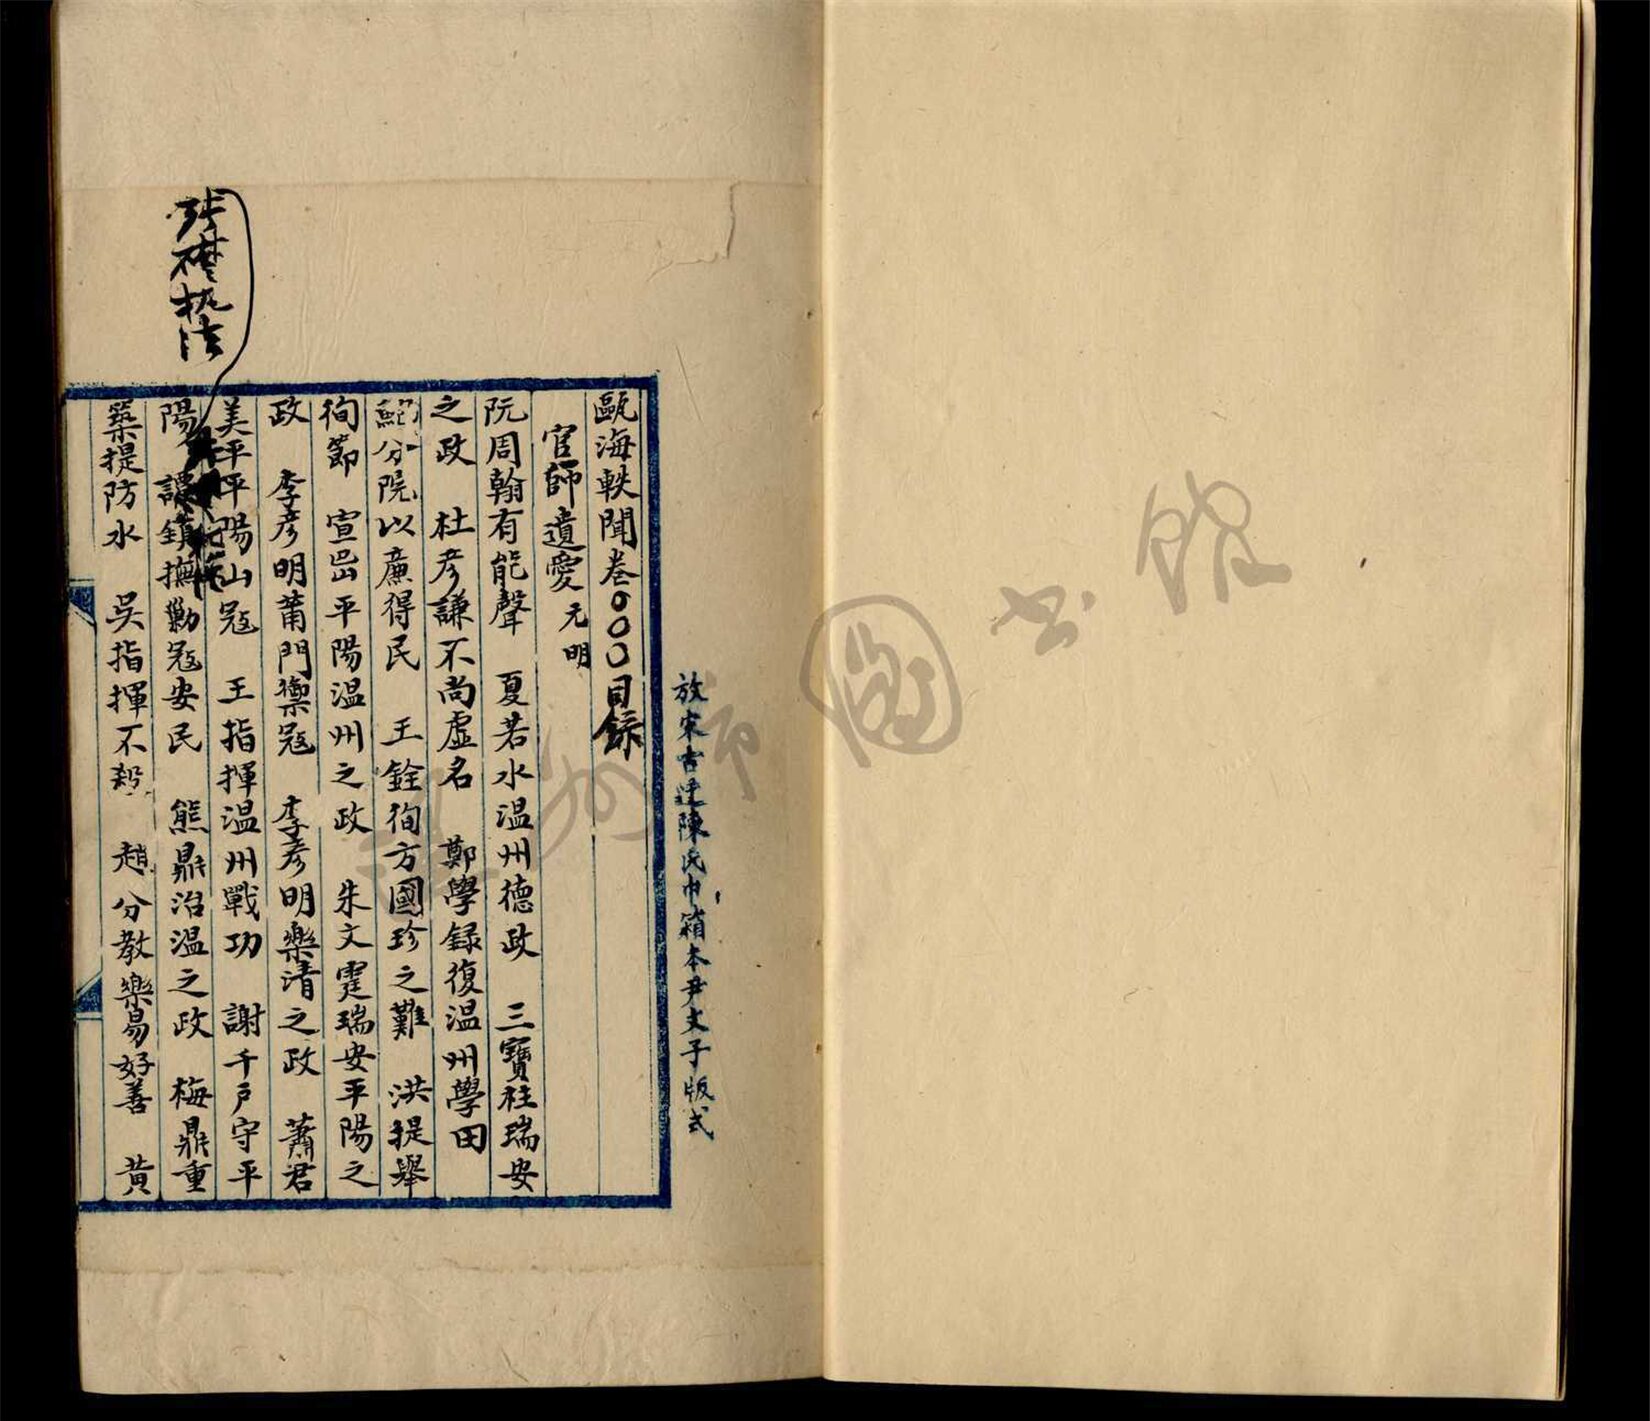 放宋古迂陳氏巾箱本尹文子版式
甌海軼聞卷〇〇〇目錄
官師遺愛 元明
阮周翰有能聲 夏若水温州德政 三寶柱瑞安
之政 杜彦謙不尚虛名 鄭學録復温州學田
鮑分院以廉得民 王銓徇方國珍之難 洪提舉
徇節 宣岊平陽温州之政 朱文霆瑞安平陽之
政 李彦明莆門禦寇 李彦明樂清之政 蕭君
美平平陽山寇 王指揮温州戰功 謝千戶守平
陽 譚鎮撫勦寇安民 熊鼎治温之政 梅鼎重
築提防水 吳指揮不殺 趙分教樂易好善 黃
張礎執法
温州市圖書館